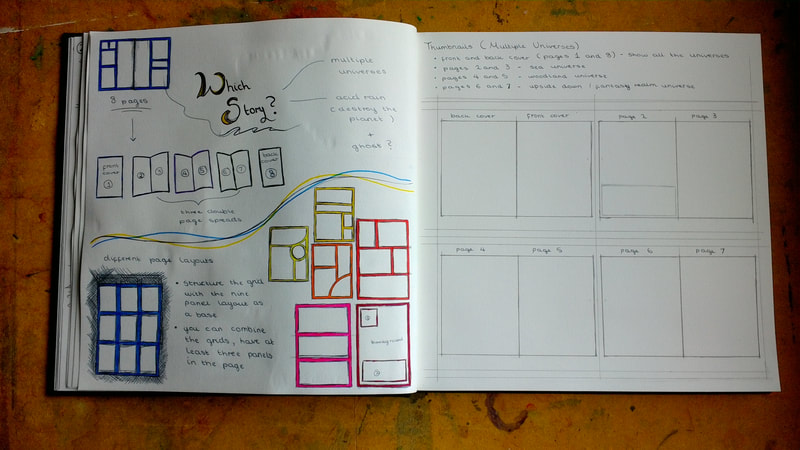 8 pages
Which
Story?
multiple
universes
acid rain
(destroy the
planet)
+
ghost?
front
cover
1
2
3
4
5
6
7
back
cover
8
three double
page spreads
different page layouts
• structure the grid
with the nine
panel layout as
a base
• you can combine
the grids, have at
least three panels
in the page
Thumbnails (Multiple Universes)
• front and back cover (pages 1 and 8) - show all the universes
• pages 2 and 3 - sea universe
• pages 4 and 5 - woodland universe
• pages 6 and 7 - upside down / fantasy realm universe
back cover
front cover
page 2
page 3
page 4
page 5
page 6
page 7